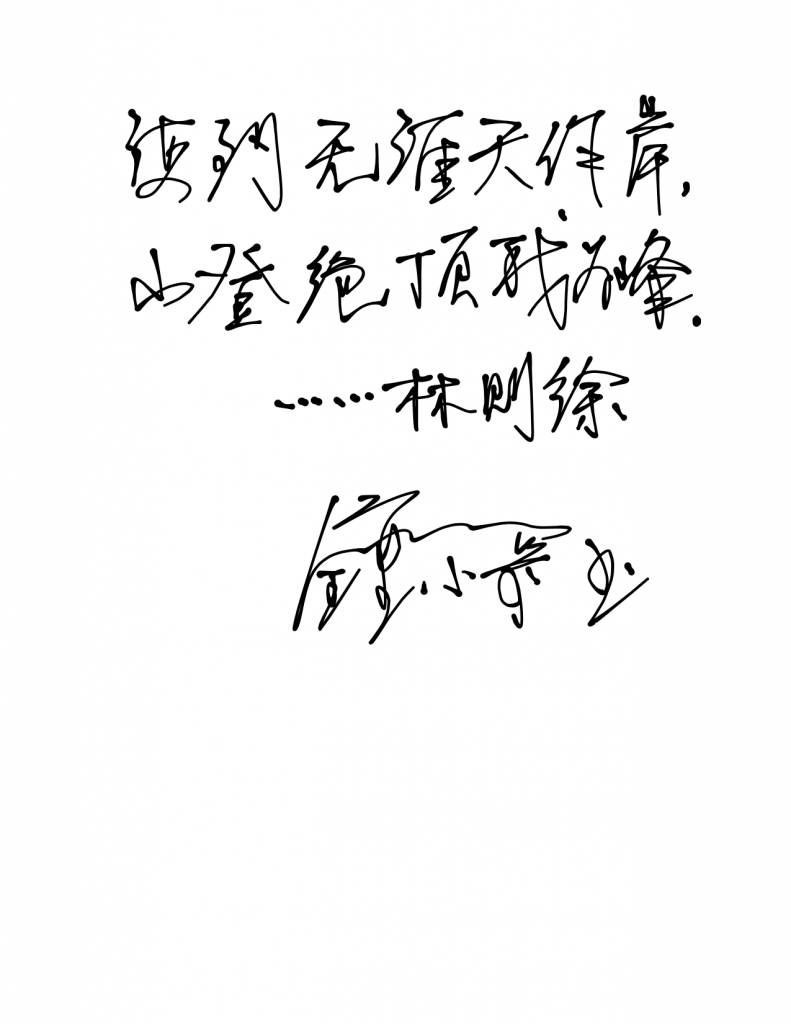 海到无涯天作岸,
山登绝顶我为峰.
……林则徐
小 书